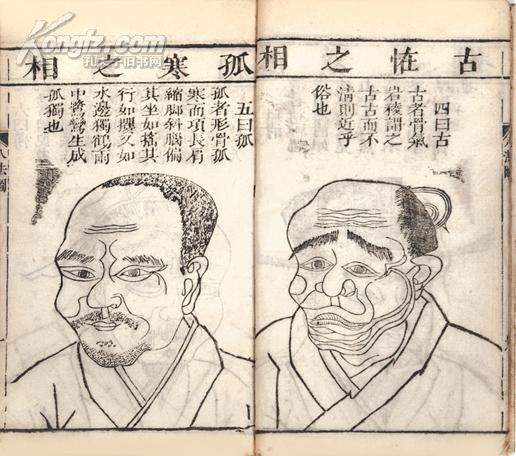 古恠之相
四曰古
古者骨氣
岩稜謂之
古古而不
清則近乎
俗也
孤寒之相
五曰孤
孤者形骨孤
寒而項長肩
縮脚斜腦偏
其坐如搖其
行如攫又如
水邊獨鶴雨
中鷺鷥生成
孤獨也
八法圖
Kongfz.com
孔夫子旧书网